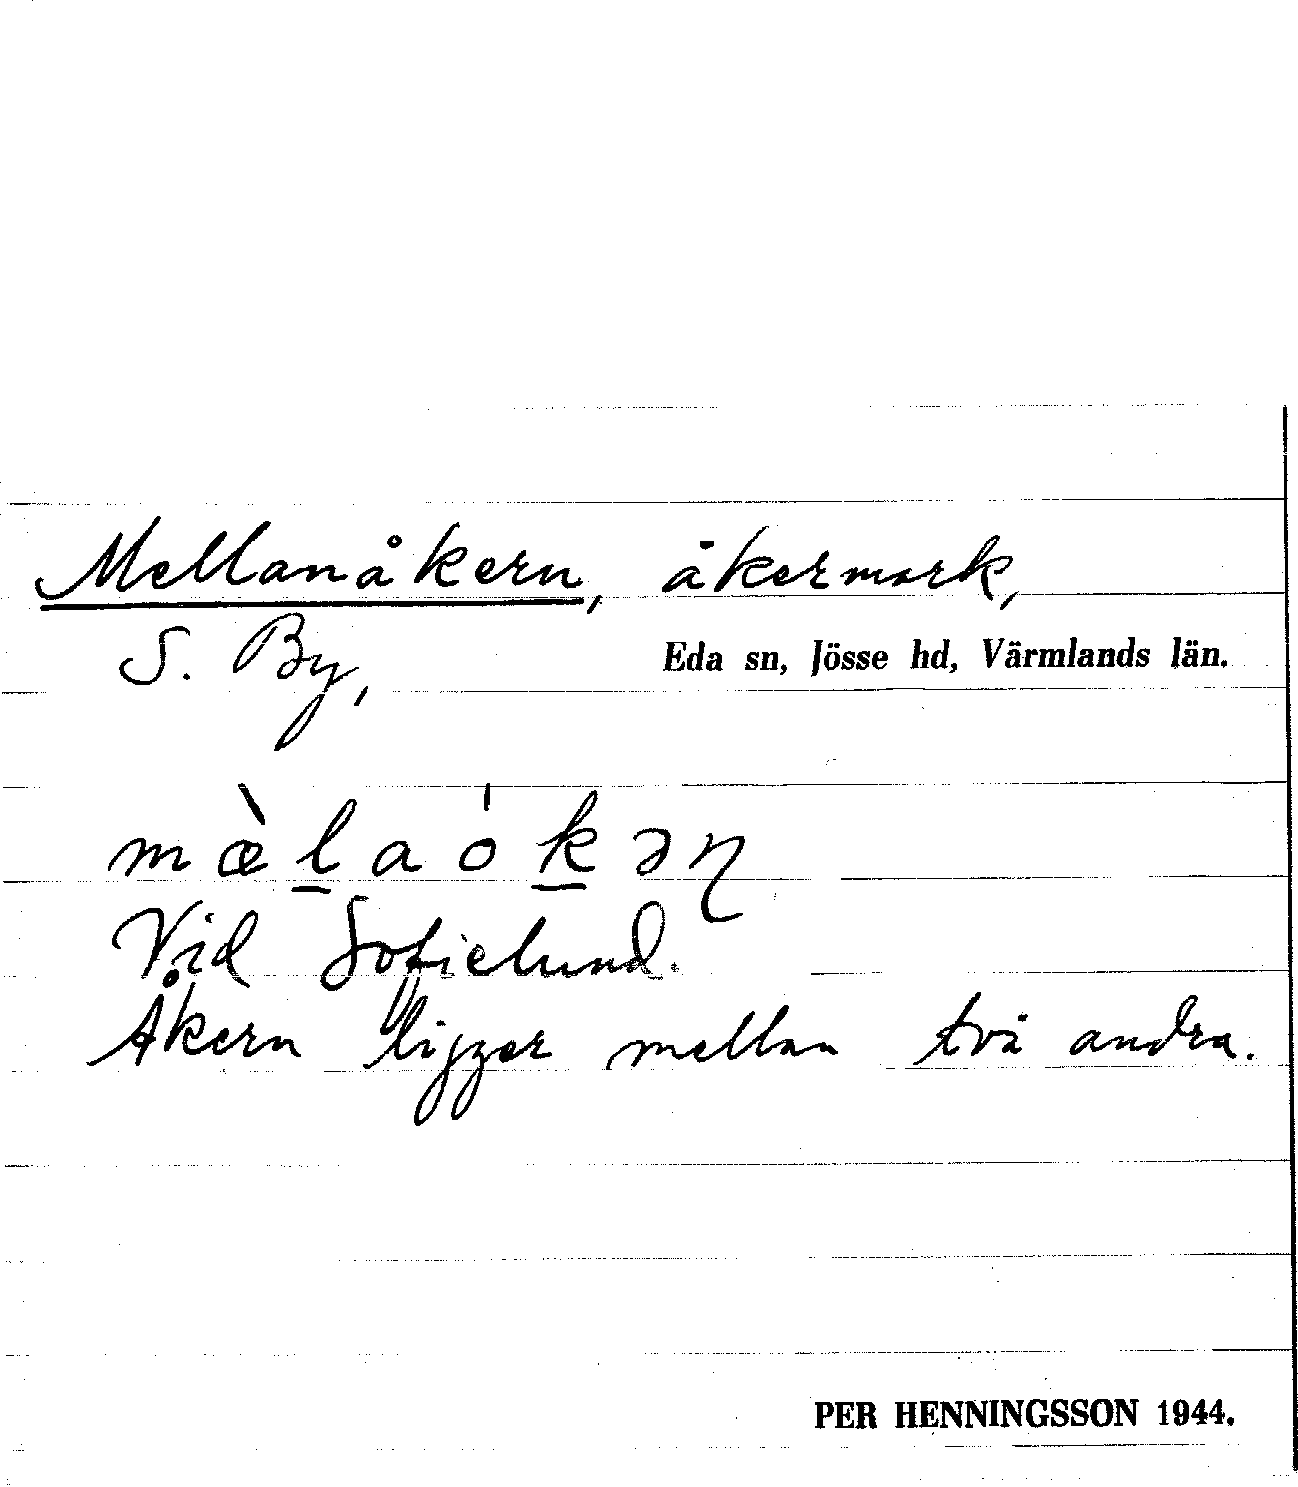 Mellanåkern, åkermark,
S. By, Eda sn, Jösse hd, Värmlands län.
mæ̀l̠aók̠əɳ
Vid Sofielund.
Åkern ligger mellan två andra.
PER HENNINGSSON 1944.